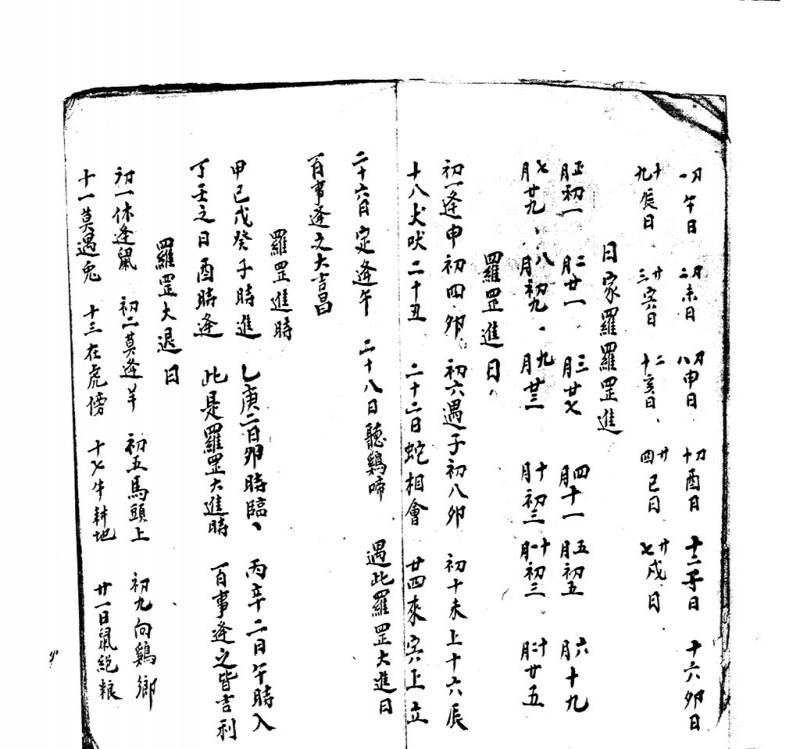 初一午日 初二未日 初八申日 初十酉日 十二子日 十六卯日
十九辰日 廿三寅日 二十亥日 廿四巳日 廿七戌日
日家羅羅罡進
正月初一 二月廿一 三月廿七 四月十一 五月初五 六月十九
七月廿九、八月初九、九月廿三 十月初三 十一月初三 十二月廿五
羅罡進日、
初一逢申初四卯 初六遇子初八卯 初十未上十六辰
十八犬吠二十丑 二十二日蛇相會 廿四來寅上立
二十六日定逢午 二十八日聽鷄啼 遇此羅罡大進日
百事逢之大吉昌
羅罡進時
甲己戊癸子時進 乙庚二日卯時臨、丙辛二日午時入
丁壬之日酉時逢 此是羅罡大進時 百事逢之皆吉利
羅罡大退日
初一休逢鼠 初二莫逢羊 初五馬頭上 初九向鷄鄉
十一莫遇兔 十三在虎傍 十七牛耕地 廿一日鼠絕粮